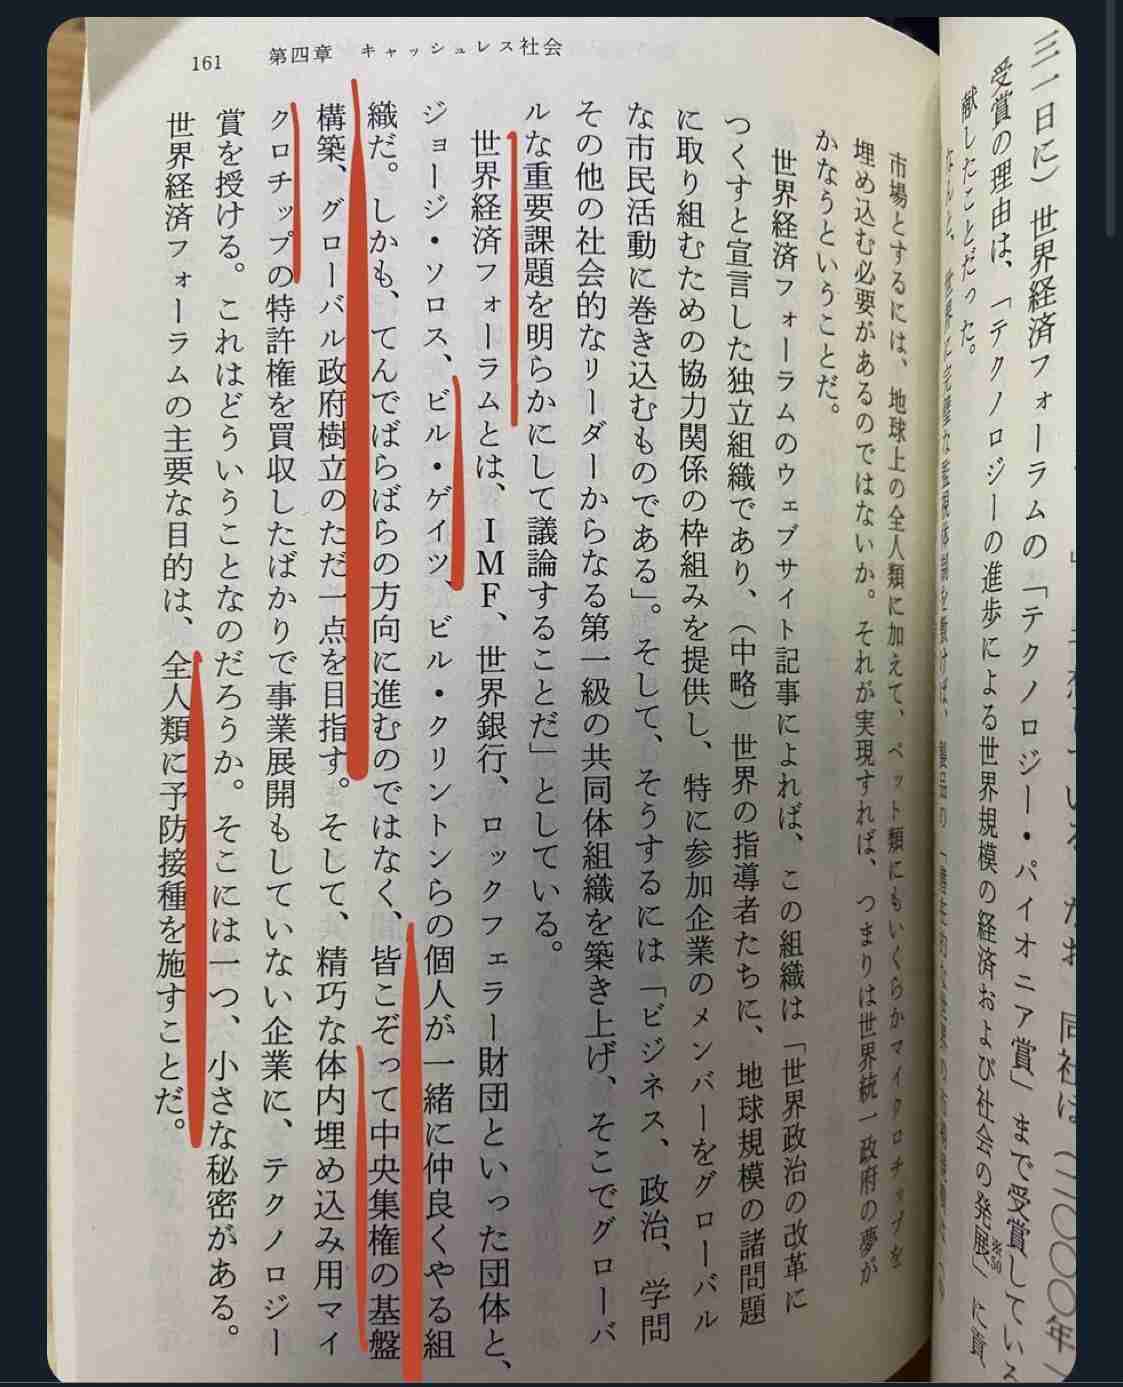 161　第四章　キャッシュレス社会
三一日に）世界経済フォーラムの「テクノロジー・パイオニア賞」まで受賞している
受賞の理由は、「テクノロジーの進歩による世界規模の経済および社会の発展」に貢
献したことだった。
市場とするには、地球上の全人類に加えて、ペット類にもいくらかマイクロチップを
埋め込む必要があるのではないか。それが実現すれば、つまりは世界統一政府の夢が
かなうということだ。
世界経済フォーラムのウェブサイト記事によれば、この組織は「世界政治の改革に
つくすと宣言した独立組織であり、（中略）世界の指導者たちに、地球規模の諸問題
に取り組むための協力関係の枠組みを提供し、特に参加企業のメンバーをグローバル
な市民活動に巻き込むものである」。そして、そうするには「ビジネス、政治、学問
その他の社会的なリーダーからなる第一級の共同体組織を築き上げ、そこでグローバ
ルな重要課題を明らかにして議論することだ」としている。
世界経済フォーラムとは、ＩＭＦ、世界銀行、ロックフェラー財団といった団体と、
ジョージ・ソロス、ビル・ゲイツ、ビル・クリントンらの個人が一緒に仲良くやる組
織だ。しかも、てんでばらばらの方向に進むのではなく、皆こぞって中央集権の基盤
構築、グローバル政府樹立のただ一点を目指す。そして、精巧な体内埋め込み用マイ
クロチップの特許権を買収したばかりで事業展開もしていない企業に、テクノロジー
賞を授ける。これはどういうことなのだろうか。そこには一つ、小さな秘密がある。
世界経済フォーラムの主要な目的は、全人類に予防接種を施すことだ。